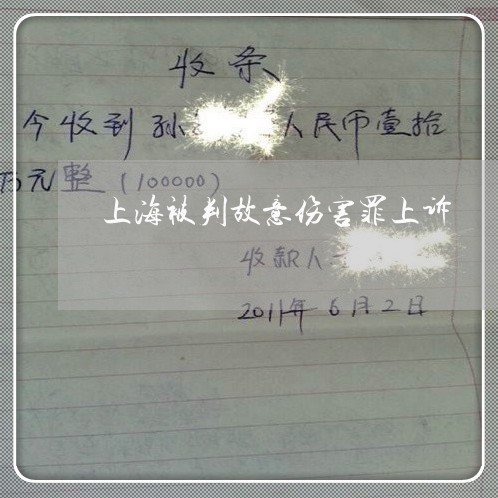 收条
今收到孙 人民币壹拾
万元整（100000）
上海被判故意伤害罪上诉
收款人
2011年6月2日